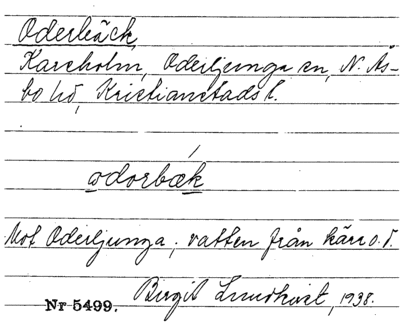 Oderbäck,
Kareholm, Oderljunga sn, N. Ås-
bo hd, Kristianstads l.
odorbæk
Mot Oderljunga; vatten från kärr o.d.
Birgit Lundkvist, 1938.
Nr 5499.